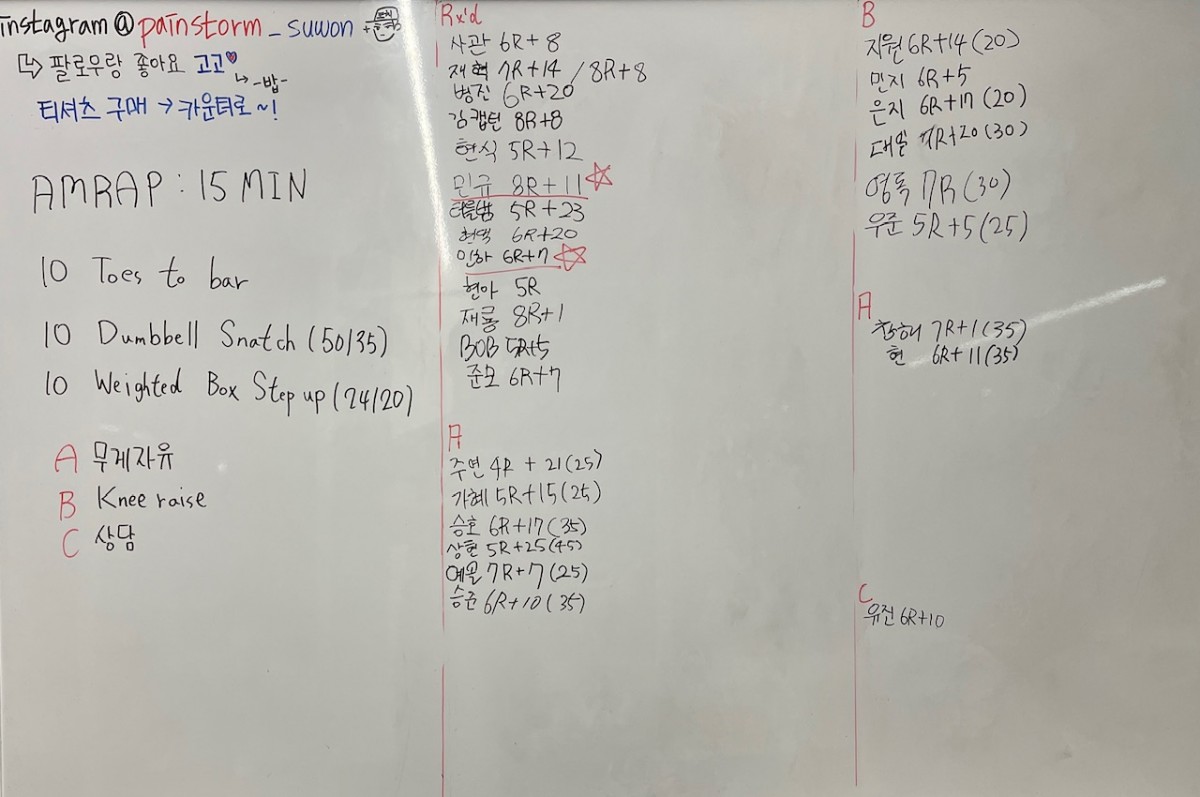 instagram@painstorm_suwon +
↳ 팔로우랑 좋아요 고고♥
↳ -밥-
티셔츠 구매 → 카운터로~!
AMRAP : 15 MIN
10 Toes to bar
10 Dumbbell Snatch (50/35)
10 Weighted Box Step up (24/20)
A 무게자유
B Knee raise
C 상담
Rx'd
사관 6R+8
재혁 7R+14 / 8R+8
병진 6R+20
김캡틴 8R+8
현식 5R+12
민규 8R+11 ☆
5R+23
현덕 6R+20
인하 6R+7 ☆
현아 5R
재룡 8R+1
BOB 5R+5
준모 6R+7
A
주연 4R + 21(25)
가혜 5R+15(25)
승호 6R+17(35)
상현 5R+25(45)
예솔 7R+7(25)
승준 6R+10(35)
B
지원 6R+14(20)
민지 6R+5
은지 6R+17(20)
대일 7R+20(30)
영록 7R(30)
우준 5R+5(25)
A
창해 7R+1(35)
현 6R+11(35)
C
유진 6R+10